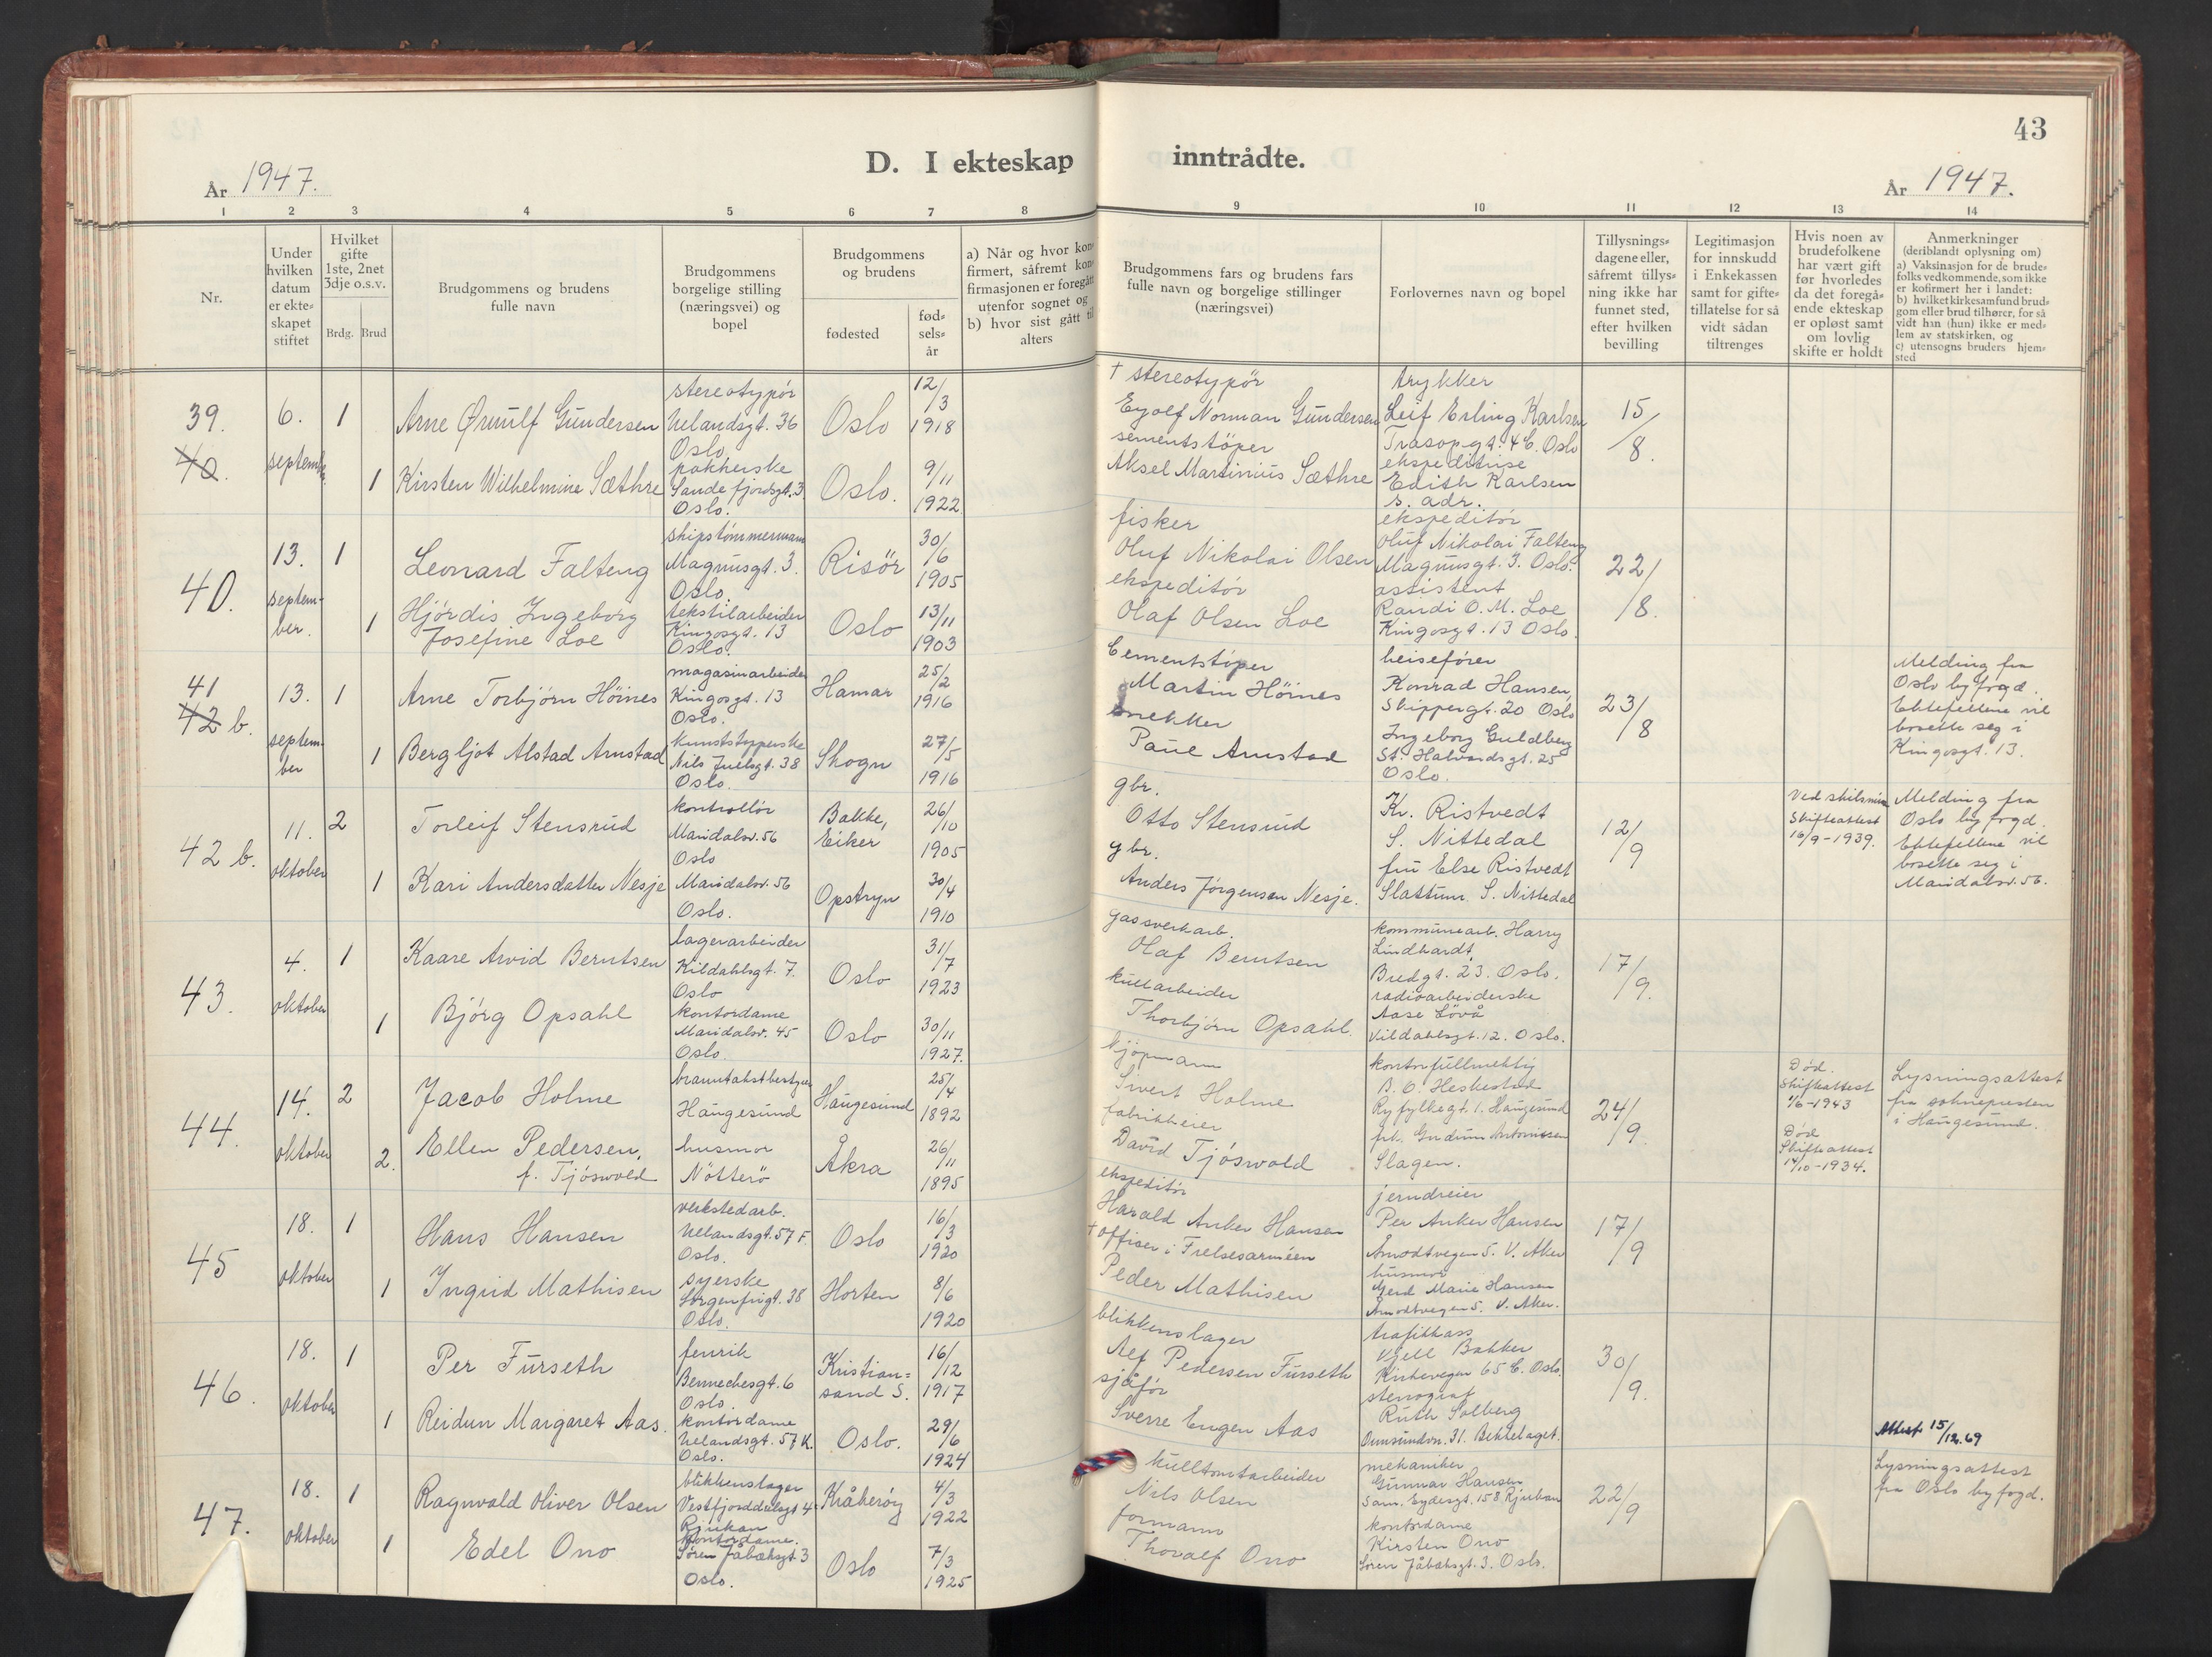 43
D. I ekteskap inntrådte.
År 1947.
År 1947.
1 2 3 4 5 6 7 8 9 10 11 12 13 14
Nr.
Under hvilken datum er ekte= skapet stiftet
Hvilket gifte 1ste, 2net 3dje o.s.v.
Brdg. Brud
Brudgommens og brudens fulle navn
Brudgommens borgelige stilling (næringsvei) og bopel
Brudgommens og brudens
fødested
fød= sels= år
a) Når og hvor kon= firmert, såfremt kon= firmasjonen er foregått utenfor sognet og
b) hvor sist gått til alters
Brudgommens fars og brudens fars fulle navn og borgelige stillinger (næringsvei)
Forlovernes navn og bopel
Tillysnings= dagene eller, såfremt tillys= ning ikke har funnet sted, efter hvilken bevilling
Legitimasjon for innskudd i Enkekassen samt for gifte= tillatelse for så vidt sådan tiltrenges
Hvis noen av brudefolkene har vært gift før hvorledes da det foregå= ende ekteskap er opløst samt om lovlig skifte er holdt
Anmerkninger
(deriblandt oplysning om)
a) Vaksinasjon for de brude= folks vedkommende, som ikke er kofirmert her i landet:
b) hvilket kirkesamfund brud= gom eller brud tilhører, for så vidt han (hun) ikke er med= lem av statskirken, og
c) utensogns bruders hjem= sted
39.
40.
6. september
1
Arne Ørnulf Gundersen
stereotypör
Uelandsgt. 36
Oslo
Oslo
12/3
1918
† stereotypör
Eyolf Norman Gundersen
trykker
Leif Erling Karlsen
Trasopgt. 4 C. Oslo
15/8.
1
Kirsten Wilhelmine Sæthre
pakkerske
Sandefjordsgt. 3
Oslo.
Oslo.
9/11
1922
sementstöper
Aksel Martinius Sæthre
ekspeditrise
Edith Karlsen
s. adr.
40.
13. september.
1
Leonard Falteng
skipstömmermann
Magnusgt. 3.
Oslo.
Risör
30/6
1905
fisker
Oluf Nikolai Olsen
ekspeditör
Oluf Nikolai Falteng
Magnusgt. 3. Oslo.
22/8.
1
Hjördis Ingeborg
Josefine Loe
tekstilarbeider
Kingosgt. 13
Oslo.
Oslo
13/11
1903
ekspeditör
Olaf Olsen Loe
assistent
Randi O. M. Loe
Kingosgt. 13 Oslo.
41
42 b.
13. september
1
Arne Torbjörn Höines
magasinarbeider
Kingosgt. 13
Oslo.
Hamar
25/2
1916
Cementstöper
Martin Höines
heiseförer
Konrad Hansen,
Skippergt. 20 Oslo
23/8
Melding fra
Oslo byfogd.
Ektefellene vil
bosette seg i
Kingosgt. 13.
1
Bergljot Alstad Arnstad
kunststopperske
Nils Juelsgt. 38
Oslo.
Skogn
27/5
1916
snekker
Paul Arnstad
Ingeborg Guldberg
St. Halvardsgt. 25
Oslo.
42 b.
11. oktober
2
Torleif Stensrud
kontrollör
Maridalsv. 56
Oslo
Bakke,
Eiker
26/10
1905
gbr.
Otto Stensrud
Kr. Ristvedt
S. Nittedal
12/9
Ved skilsmisse
Skifteattest
16/9-1939.
Melding fra
Oslo byfogd.
Ektefellene vil
bosette seg i
Maridalsv. 56.
1
Kari Andersdatter Nesje
Maridalsv. 56
Oslo.
Opstryn
30/4
1910
gbr.
Anders Jörgensen Nesje.
fru Else Ristvedt
Slattum. S. Nittedal
43.
4. oktober
1
Kaare Arvid Berntsen
lagerarbeider
Kildahlsgt. 7.
Oslo
Oslo
31/7
1923
gassverkarb.
Olaf Berntsen
kommunearb. Harry
Lindhardt,
Bredgt. 23. Oslo.
17/9.
1
Björg Opsahl
kontordame
Maridalsv. 45
Oslo.
Oslo
30/11
1927.
kullarbeider
Thorbjörn Opsahl.
radioarbeiderske
Aase Lövå
Kildahlsgt. 12. Oslo.
44.
14. oktober
2
Jacob Holme
branntakstbestyrer
Haugesund
Haugesund
25/4
1892
kjöpmann
Sivert Holme
kontorfullmektig
B. O. Heskestad
Ryfylkegt. 1. Haugesund
24/9.
Död.
Skifteattest
1/6-1943
Lysningsattest
fra soknepresten
i Haugesund.
2.
Ellen Pedersen,
f. Tjösvold
husmor
Nötterö
Åkra
26/11
1895
fabrikkeier
David Tjöswold
frk. Gudrun Antonissen
Slagen.
Död
Skifteattest
14/10-1934.
45
18. oktober
1
Hans Hansen
verkstedarb.
Uelandsgt. 57 F.
Oslo.
Oslo
16/3
1920
ekspeditör
Harald Anker Hansen
jerndreier
Per Anker Hansen
Åmodtvegen 5. V. Aker
17/9
1
Ingrid Mathisen
syerske
Sorgenfrigt. 38
Oslo.
Horten
8/6
1920
† offiser i Frelsesarméen
Peder Mathisen
husmor
Gerd Marie Hansen
Åmodtvegen 5. V. Aker.
46.
18. oktober
1
Per Furseth
fenrik
Bennechesgt. 6
Oslo.
Kristian=
sand S.
16/12
1917
blikkenslager
Alf Pedersen Furseth
trafikkass
Kjell Bakker
Kirkevegen 65 C. Oslo.
30/9.
1
Reidun Margaret Aas.
kontordame
Uelandsgt. 57 K.
Oslo.
Oslo.
29/6
1924
sjåför
Sverre Engen Aas
stenograf
Ruth Solberg
Ormsundvn. 31. Bekkelaget.
Attest 15/12.69
47.
18. oktober
1
Ragnvald Oliver Olsen
blikkenslager
Vestfjorddalsgt 4
Rjukan
Kråkeröy
4/3
1922
kulltomtarbeider
Nils Olsen
mekaniker
Gunnar Hansen
Sam. Eydesgt. 158 Rjukan
22/9
Lysningsattest
fra Oslo byfogd.
1
Edel Ono
kontordame.
Sören Jåbæksgt 3
Oslo.
Oslo
7/3
1925
formann
Thoralf Ono
kontordame
Kirsten Ono
Sören Jåbæksgt. 3. Oslo.